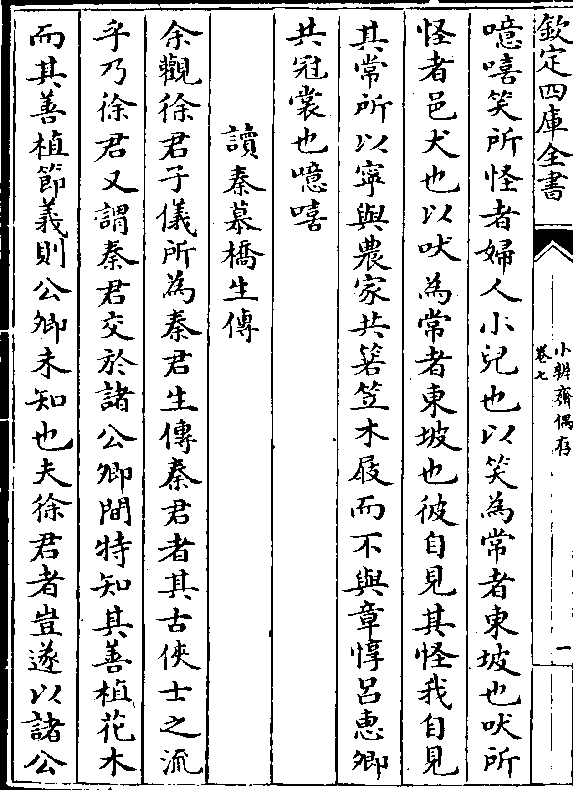 欽定四庫全書
小辨齋偶存
卷七
一
噫嘻笑所怪者婦人小兒也以笑為常者東坡也吠所
怪者邑犬也以吠為常者東坡也彼自見其怪我自見
其常所以寧與農家共箬笠木屐而不與章惇呂惠卿
共冠裳也噫嘻
讀秦慕橋生傳
余觀徐君子儀所為秦君生傳秦君者其古俠士之流
乎乃徐君又謂秦君交於諸公卿間特知其善植花木
而其善植節義則公卿未知也夫徐君者豈遂以諸公